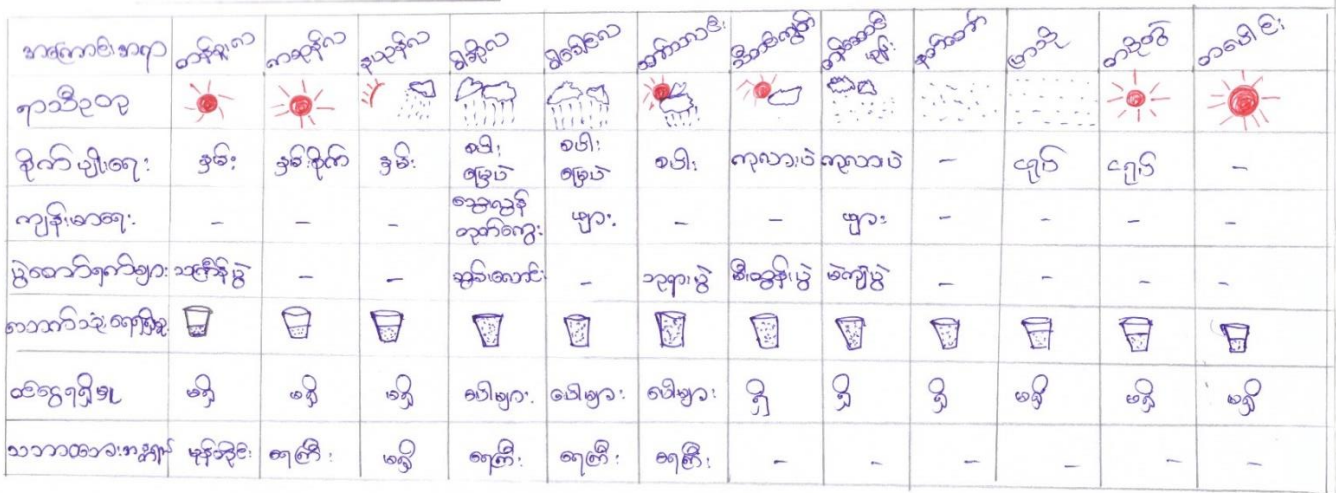 အကြောင်းအရာ တန်ခူးလ ကဆုန်လ နယုန်လ ဝါဆိုလ ဝါခေါင်လ တော်သလင်း သီတင်းကျွတ် တန်ဆောင်မုန်း နတ်တော် ပြာသို တပို့တွဲ တပေါင်း
ရာသီဥတု
စိုက်ပျိုးရေး နှမ်း နှမ်းစိုက် နှမ်း စပါး မြေပဲ စပါး မြေပဲ စပါး ကုလားပဲ ကုလားပဲ - ငရုပ် ငရုပ် -
ကျန်းမာရေး - - - သွေးလွန် တုတ်ကွေး ဖျား - - ဖျား - - - -
ပွဲတော်ရက်များ သင်္ကြန်ပွဲ - - ဆွမ်းလောင်း - ဘုရားပွဲ မီးထွန်းပွဲ - - - -
သောက်သုံးရေရရှိမှု
ထင်းရရှိမှု မရှိ မရှိ မရှိ ပေါများ ပေါများ ပေါများ ရှိ ရှိ ရှိ မရှိ မရှိ မရှိ
သဘာဝဘေးအန္တရာယ် မုန်တိုင်း ရေကြီး မရှိ ရေကြီး ရေကြီး ရေကြီး - - - - - -